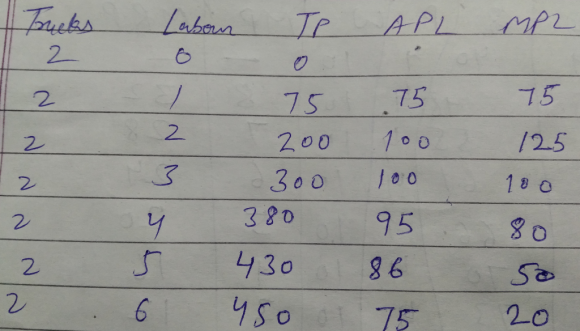 Trucks Labour TP APL MPL
2 0 0
2 1 75 75 75
2 2 200 100 125
2 3 300 100 100
2 4 380 95 80
2 5 430 86 50
2 6 450 75 20